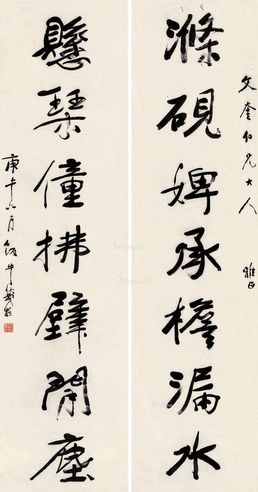 文奎仁兄大人 雅正
滌硯婢承檐漏水
懸琴僮拂壁間塵
庚午六月